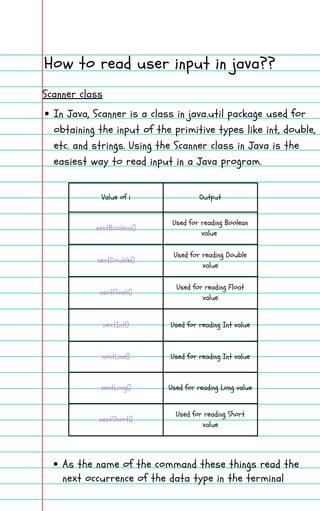 How to read user input in java??
Scanner class
• In Java, Scanner is a class in java.util package used for
obtaining the input of the primitive types like int, double,
etc. and strings. Using the Scanner class in Java is the
easiest way to read input in a Java program.
Value of i Output
nextBoolean() Used for reading Boolean
value
nextDouble() Used for reading Double
value
nextFloat() Used for reading Float
value
nextInt() Used for reading Int value
nextLine() Used for reading Int value
nextLong() Used for reading Long value
nextShort() Used for reading Short
value
• As the name of the command these things read the
next occurrence of the data type in the terminal